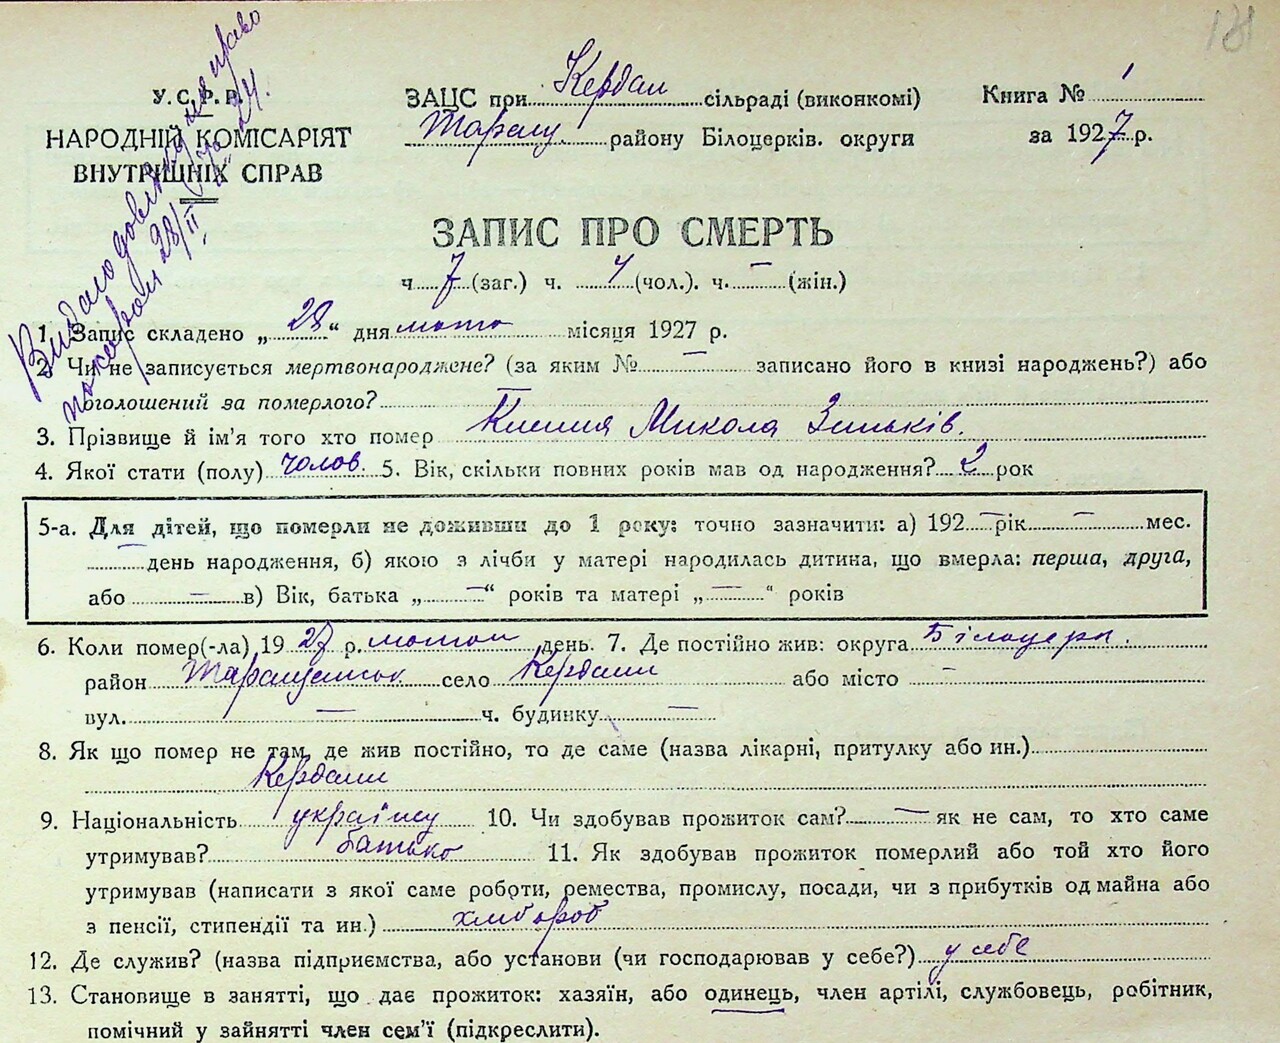 181
Видано довідку на право
похорон 28/II
У.С.Р.Р.
НАРОДНІЙ КОМІСАРІЯТ
ВНУТРІШНІХ СПРАВ
ЗАЦС при Кердан сільраді (виконкомі)
Таращ. району Білоцерків. округи
Книга № 1
за 1927 р.
ЗАПИС ПРО СМЕРТЬ
ч 7 (заг.) ч. 4 (чол.). ч. — (жін.)
1. Запис складено „ 28 “ дня лютого місяця 1927 р.
2. Чи не записується мертвонароджене? (за яким № — записано його в книзі народжень?) або
оголошений за померлого? —
3. Прізвище й ім'я того хто помер Микола Зіньків.
4. Якої стати (полу) чолов. 5. Вік, скільки повних років мав од народження? 2 рок
5-а. Для дітей, що померли не доживши до 1 року: точно зазначити: а) 192 — рік — мес.
— день народження, б) якою з лічби у матері народилась дитина, що вмерла: перша, друга,
або — в) Вік, батька „ — “ років та матері „ — “ років
6. Коли помер(-ла) 1927 р. день. 7. Де постійно жив: округа Білоцерк.
район Таращанськ село Кердани або місто —
вул. — ч. будинку —
8. Як що помер не там, де жив постійно, то де саме (назва лікарні, притулку або ин.)
Кердани
9. Національність українц 10. Чи здобував прожиток сам? — як не сам, то хто саме
утримував? батько 11. Як здобував прожиток померлий або той хто його
утримував (написати з якої саме роботи, ремества, промислу, посади, чи з прибутків од майна або
з пенсії, стипендії та ин.) хлібороб
12. Де служив? (назва підприємства, або установи (чи господарював у себе?) у себе
13. Становище в занятті, що дає прожиток: хазяїн, або одинець, член артілі, службовець, робітник,
помічний у зайнятті член сем'ї (підкреслити).